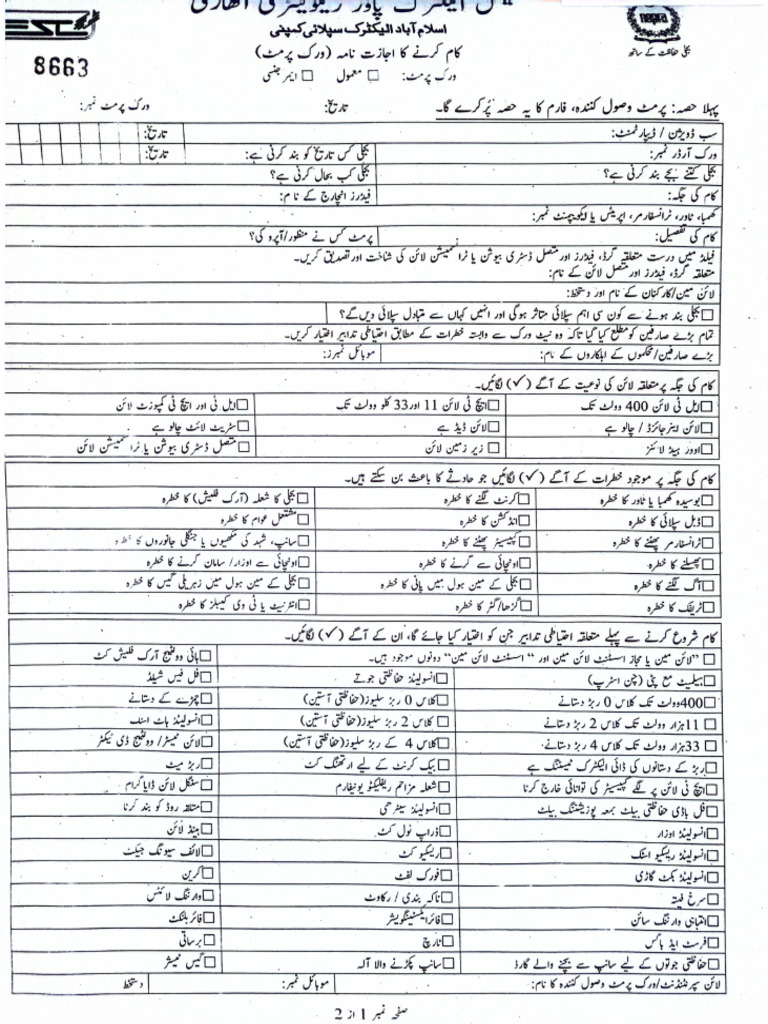 نیشنل الیکٹرک پاور ریگولیٹری اتھارٹی
اسلام آباد الیکٹرک سپلائی کمپنی
nepra
بجلی حفاظت کے ساتھ
8663
کام کرنے کا اجازت نامہ (ورک پرمٹ)
ورک پرمٹ: □ معمول □ ایمرجنسی
پہلا حصہ: پرمٹ وصول کنندہ، فارم کا یہ حصہ پُر کرے گا۔ تاریخ: ورک پرمٹ نمبر:
سب ڈویژن / ڈیپارٹمنٹ: تاریخ:
ورک آرڈر نمبر: بجلی کس تاریخ کو بند کرنی ہے: تاریخ:
بجلی کتنے بجے بند کرنی ہے؟ بجلی کب بحال کرنی ہے؟
کام کی جگہ: فیڈرز انچارج کے نام:
کھمبا، ٹاور، ٹرانسفارمر، اپریٹس یا ایکویپمنٹ نمبر:
کام کی تفصیل: پرمٹ کس نے منظور/اپرو کی؟
فیلڈ میں درست متعلقہ گرڈ، فیڈرز اور متصل ڈسٹری بیوشن یا ٹرانسمیشن لائن کی شناخت اور تصدیق کریں۔
متعلقہ گرڈ، فیڈرز اور متصل لائن کے نام:
لائن مین/کارکنان کے نام اور دستخط:
□ بجلی بند ہونے سے کون سی اہم سپلائی متاثر ہوگی اور انہیں کہاں سے متبادل سپلائی دیں گے؟
تمام بڑے صارفین کو مطلع کیا گیا تاکہ وہ نیٹ ورک سے وابستہ خطرات کے مطابق احتیاطی تدابیر اختیار کریں۔
بڑے صارفین/محکموں کے اہلکاروں کے نام: موبائل نمبرز:
کام کی جگہ پر متعلقہ لائن کی نوعیت کے آگے (✓) لگائیں۔
□ ایل ٹی لائن 400 وولٹ تک □ ایچ ٹی لائن 11 اور 33 کلو وولٹ تک □ ایل ٹی اور ایچ ٹی کمپوزٹ لائن
□ لائن انرجائزڈ / چالو ہے □ لائن ڈیڈ ہے □ سٹریٹ لائٹ چالو ہے
□ اوور ہیڈ لائنز □ زیر زمین لائن □ متصل ڈسٹری بیوشن یا ٹرانسمیشن لائن
کام کی جگہ پر موجود خطرات کے آگے (✓) لگائیں جو حادثے کا باعث بن سکتے ہیں۔
□ بوسیدہ کھمبا یا ٹاور کا خطرہ □ کرنٹ لگنے کا خطرہ □ بجلی کا شعلہ (آرک فلیش) کا خطرہ
□ ڈبل سپلائی کا خطرہ □ انڈکشن کا خطرہ □ مشتعل عوام کا خطرہ
□ ٹرانسفارمر پھٹنے کا خطرہ □ کپیسیٹر پھٹنے کا خطرہ □ سانپ، شہد کی مکھیوں یا جنگلی جانوروں کا خطرہ
□ پھسلنے کا خطرہ □ اونچائی سے گرنے کا خطرہ □ اونچائی سے اوزار/ سامان گرنے کا خطرہ
□ آگ لگنے کا خطرہ □ بجلی کے مین ہول میں پانی کا خطرہ □ بجلی کے مین ہول میں زہریلی گیس کا خطرہ
□ ٹریفک کا خطرہ □ گڑھا/گٹر کا خطرہ □ انٹرنیٹ یا ٹی وی کیبلز کا خطرہ
کام شروع کرنے سے پہلے متعلقہ احتیاطی تدابیر جن کو اختیار کیا جائے گا، ان کے آگے (✓) لگائیں۔
□ "لائن مین یا مجاز اسسٹنٹ لائن مین اور "اسسٹنٹ لائن مین" دونوں موجود ہیں۔ □ ہائی وولٹیج آرک فلیش کٹ
□ ہیلمیٹ مع پنی (چن اسٹرپ) □ انسولیٹڈ حفاظتی جوتے □ فل فیس شیلڈ
□ 400 وولٹ تک کلاس 0 ربڑ دستانے □ کلاس 0 ربڑ سلیوز (حفاظتی آستین) □ چمڑے کے دستانے
□ 11 ہزار وولٹ تک کلاس 2 ربڑ دستانے □ کلاس 2 ربڑ سلیوز (حفاظتی آستین) □ انسولیٹڈ ہاٹ اسٹک
□ 33 ہزار وولٹ تک کلاس 4 ربڑ دستانے □ کلاس 4 کے ربڑ سلیوز (حفاظتی آستین) □ لائن ٹیسٹر/ وولٹیج ڈی ٹیکٹر
□ ربڑ کے دستانوں کی ڈائی الیکٹرک ٹیسٹنگ ہے □ بیک کرنٹ کے لیے ارتھنگ کٹ □ ربڑ میٹ
□ ایچ ٹی لائن پر لگے کپیسیٹر کی توانائی خارج کرنا □ شعلہ مزاحم ریفلیکٹو یونیفارم □ سنگل لائن ڈایاگرام
□ فل باڈی حفاظتی بیلٹ بمعہ پوزیشننگ بیلٹ □ انسولیٹڈ سیڑھی □ متعلقہ روڈ کو بند کرنا
□ انسولیٹڈ اوزار □ ڈراپ ٹول کٹ □ ہینڈ لائن
□ انسولیٹڈ ریسکیو اسٹک □ ریسکیو کٹ □ لائف سیونگ جیکٹ
□ انسولیٹڈ بکٹ گاڑی □ فورک لفٹ □ کرین
□ سرخ فیتہ □ ناکہ بندی / رکاوٹ □ وارننگ لائٹس
□ انتباہی وارننگ سائن □ فائر ایکسٹینگویشر □ فائر بلنکٹ
□ فرسٹ ایڈ باکس □ ٹارچ □ برساتی
□ حفاظتی جوتوں کے لیے سانپ سے بچنے والے گارڈ □ سانپ پکڑنے والا آلہ □ گیس ٹیسٹر
لائن سپرنٹنڈنٹ/ورک پرمٹ وصول کنندہ کا نام: موبائل نمبر: دستخط
صفحہ نمبر 1 از 2